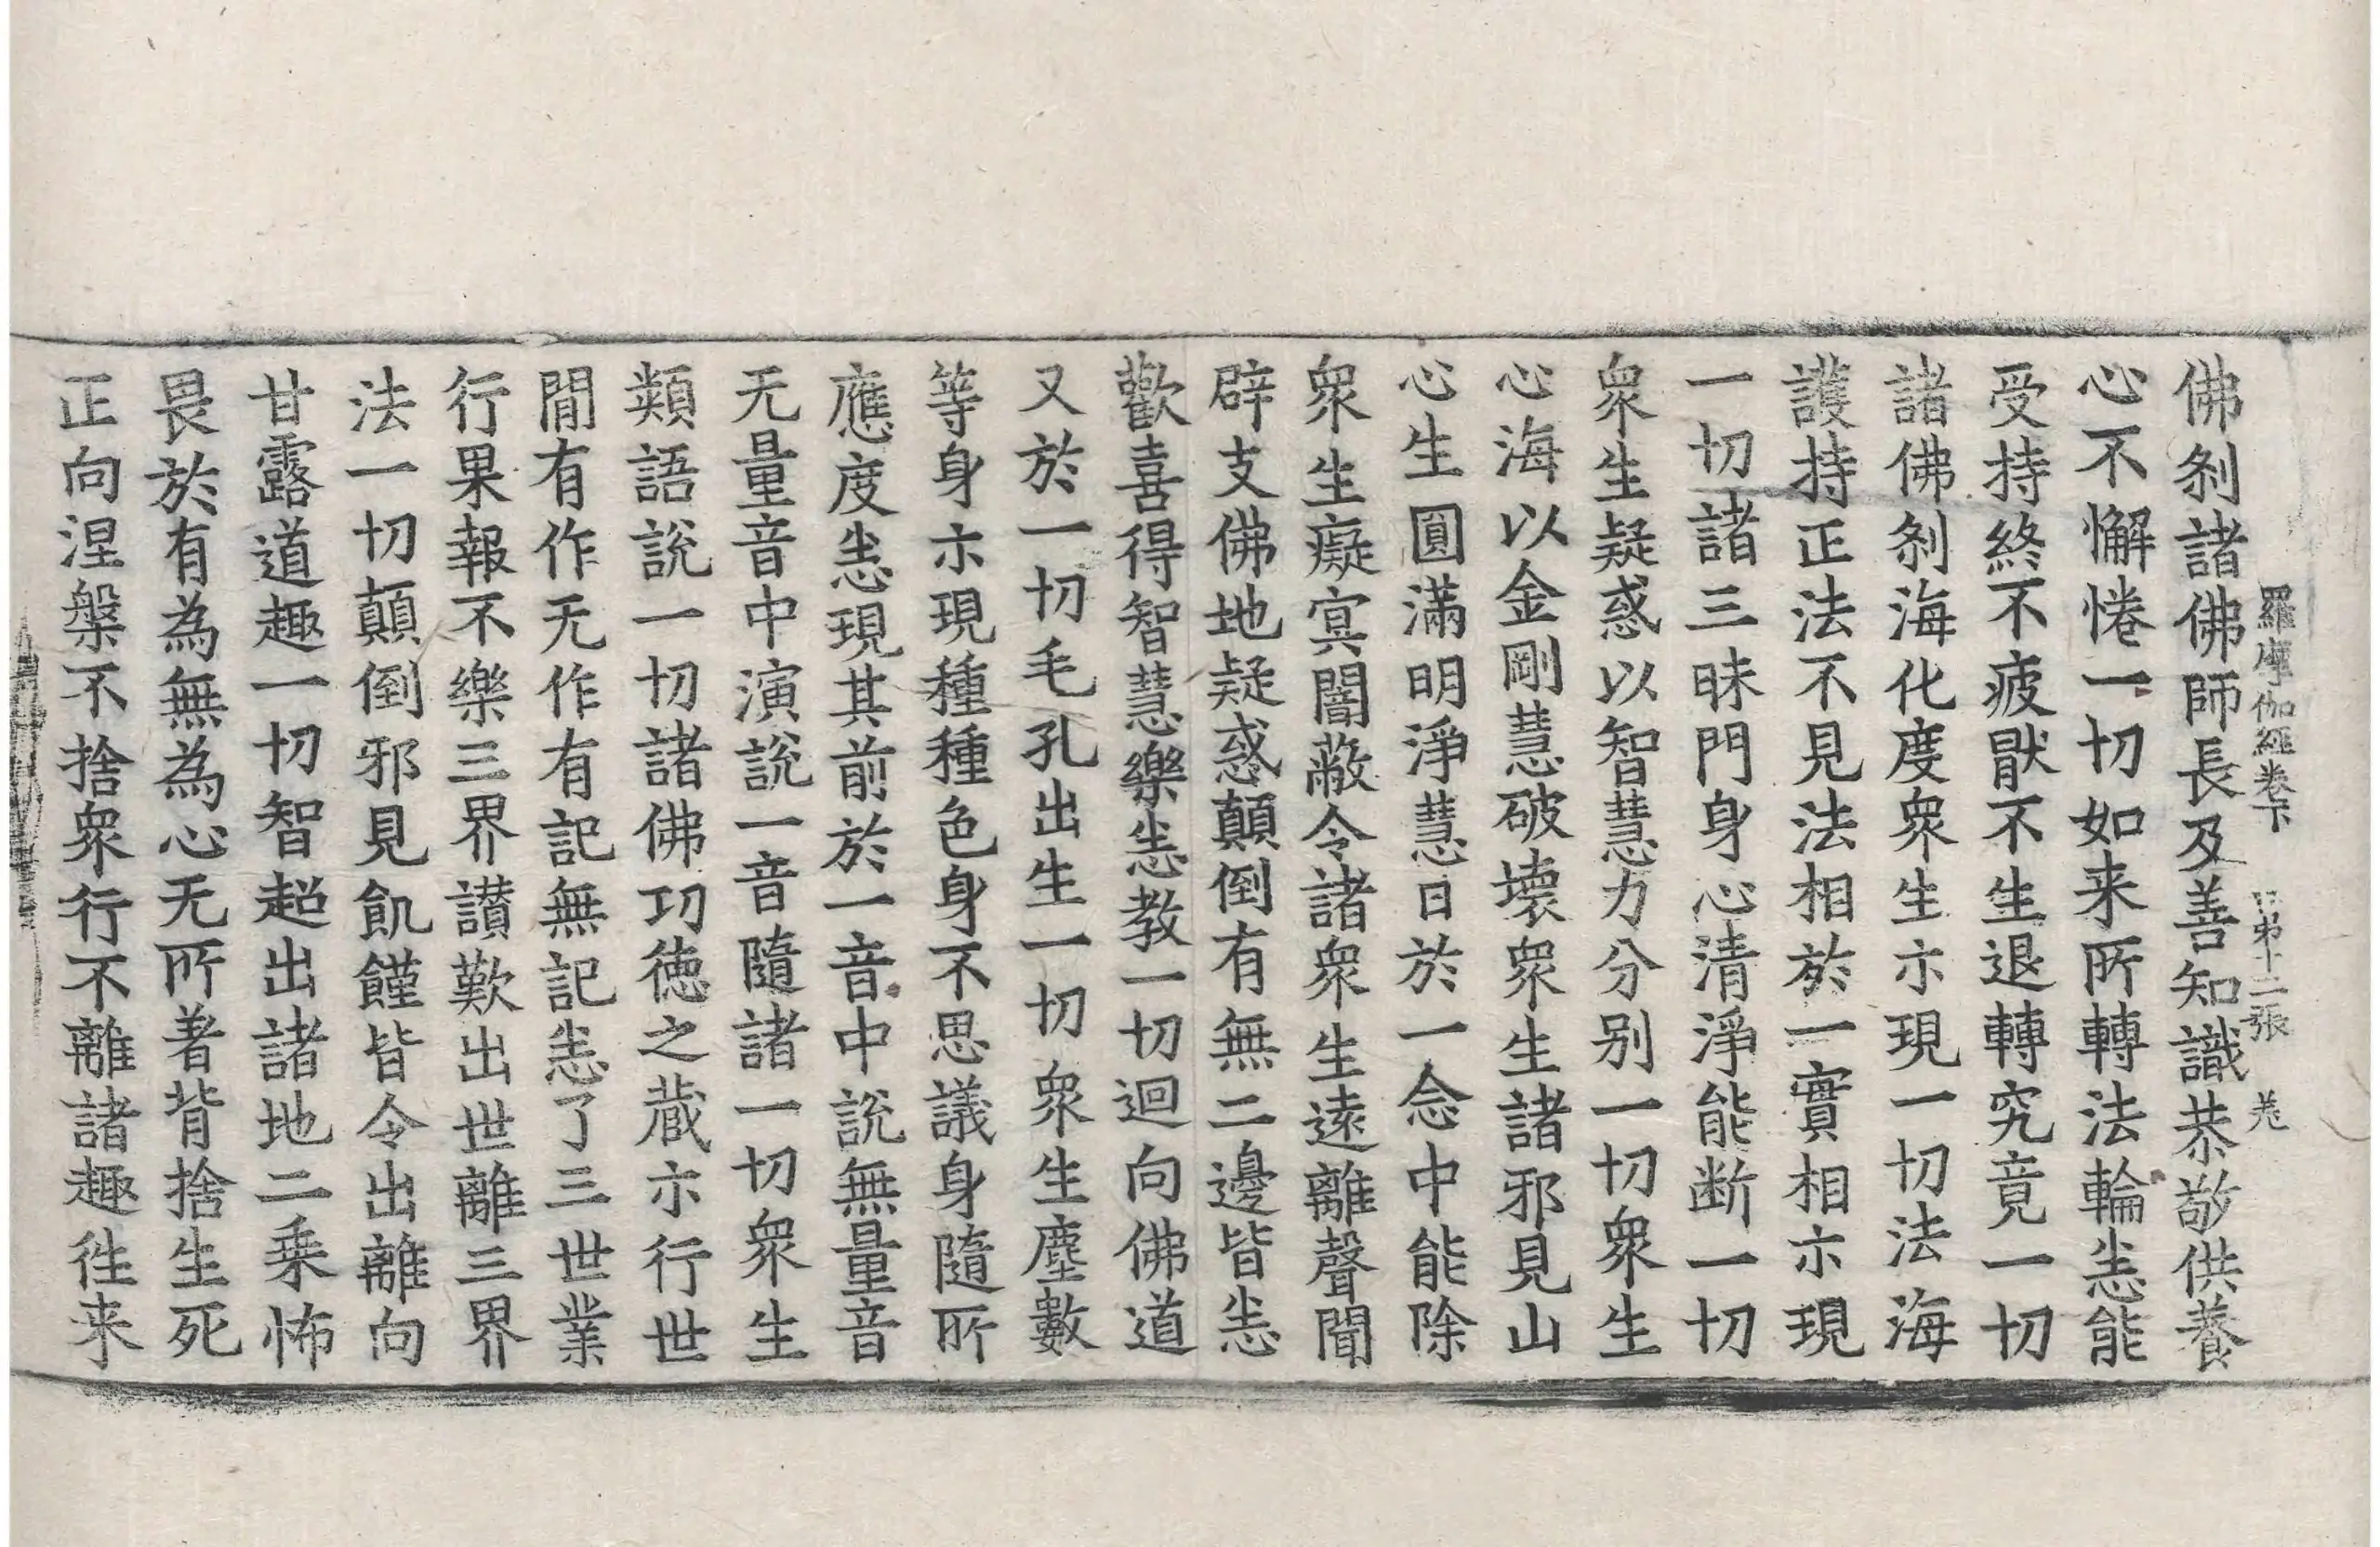 羅摩伽經卷下 第十二張
佛刹諸佛師長及善知識恭敬供養
心不懈惓一切如来所轉法輪恚能
受持終不疲猒不生退轉究竟一切
諸佛刹海化度衆生示現一切法海
護持正法不見法相於一實相示現
一切諸三昧門身心清淨能断一切
衆生疑惑以智慧力分别一切衆生
心海以金剛慧破壞衆生諸邪見山
心生圓滿明淨慧日於一念中能除
衆生癡冥闇蔽令諸衆生遠離聲聞
辟支佛地疑惑顛倒有無二邊皆恚
歡喜得智慧樂恚教一切迴向佛道
又於一切毛孔出生一切衆生塵數
等身示現種種色身不思議身隨所
應度恚現其前於一音中説無量音
无量音中演説一音隨諸一切衆生
類語説一切諸佛功徳之蔵示行世
間有作无作有記無記恚了三世業
行果報不樂三界讃歎出世離三界
法一切顛倒邪見飢饉皆令出離向
甘露道趣一切智超出諸地二乗怖
畏於有為無為心无所著背捨生死
正向涅槃不捨衆行不離諸趣往来